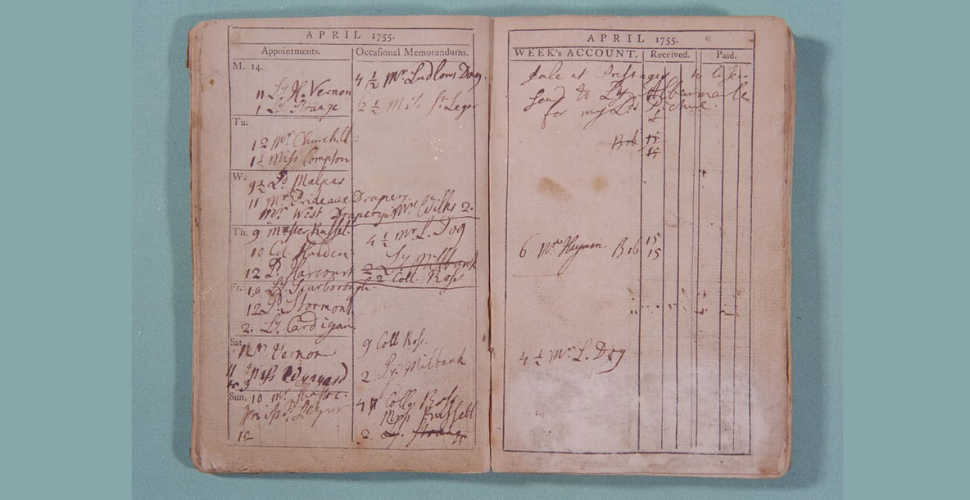 APRIL 1755.
Appointments. Occasional Memorandums.
M. 14.
4 ½ Mr Ludlows Dog
11 Ly H. Vernon
1 Ly Strange
2 ½ Miss St Leger
Tu.
12 Mr Churchill
1 ½ Miss Compton
W.
9 ½ Ld Malpas
11 Mr Prideaux Drapery
Mr West Drapery. Mrs Wilks 2.
Th. 9 Master Russel
4 ½ Mr L. Dog
10 Col. Holden
Ly Milbank
12 Ld Harcourt
2 Coll. Ross
Fr. 10 Ly Scarborough
12 Ld Stormont
2. Ly Cardigan
Sat.
11 Mr Vernon
9 Coll Ross.
11 Miss
2 Ly Milbank
Sun. 10 Mr
4 Coll Ross
Miss St Leger
Miss Russell
12
2. Ly Strange
APRIL 1755.
WEEK's ACCOUNT. Received. Paid.
Sale at
Send to Ly Albemarle
for my Lds Picture.
Bob 15
15
6 Mr Hayman Bob 15
15
4 ½ Mr L. Dog